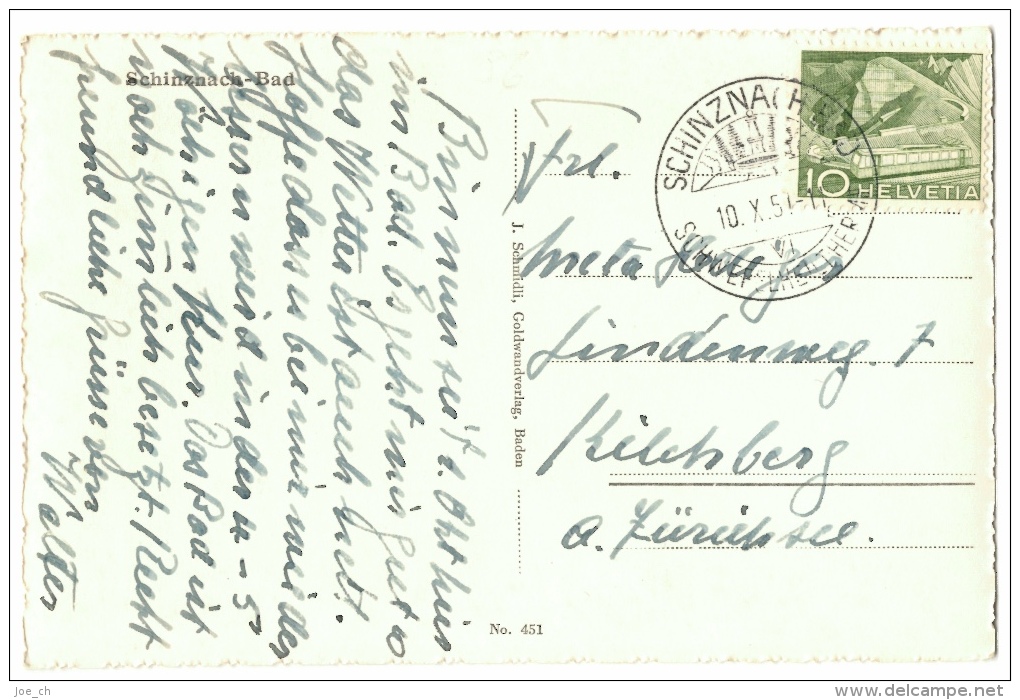 Schinznach-Bad
Bin nun seit 2. Okt hier
im Bad. Es geht mir gut &
das Wetter ist auch gut.
Hoffe dass es bei mir mit der
Kur wird in den 4 - 5
Kur. Das Bad ist
noch ziemlich besetzt. Recht
freundliche Grüsse von
Walter
J. Schmidli, Goldwandverlag, Baden
No. 451
Frl.
Meta
Lindenweg. 7
Kilchberg
a. Zürichsee.
SCHINZNACH BAD
10. X. 51
SCHWEFELTHERME
10 HELVETIA
joe_ch
delcampe.net